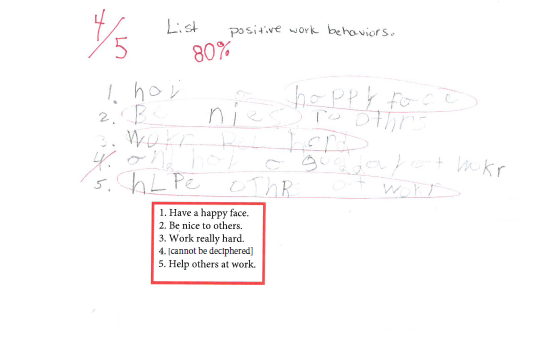 4/5
List positive work behaviors.
80%
1. hav a happy face
2. Be nice to othrs
3. Wokr held
4. hav a at wokr
5. hLPe oThR at wokr
1. Have a happy face.
2. Be nice to others.
3. Work really hard.
4. [cannot be deciphered]
5. Help others at work.